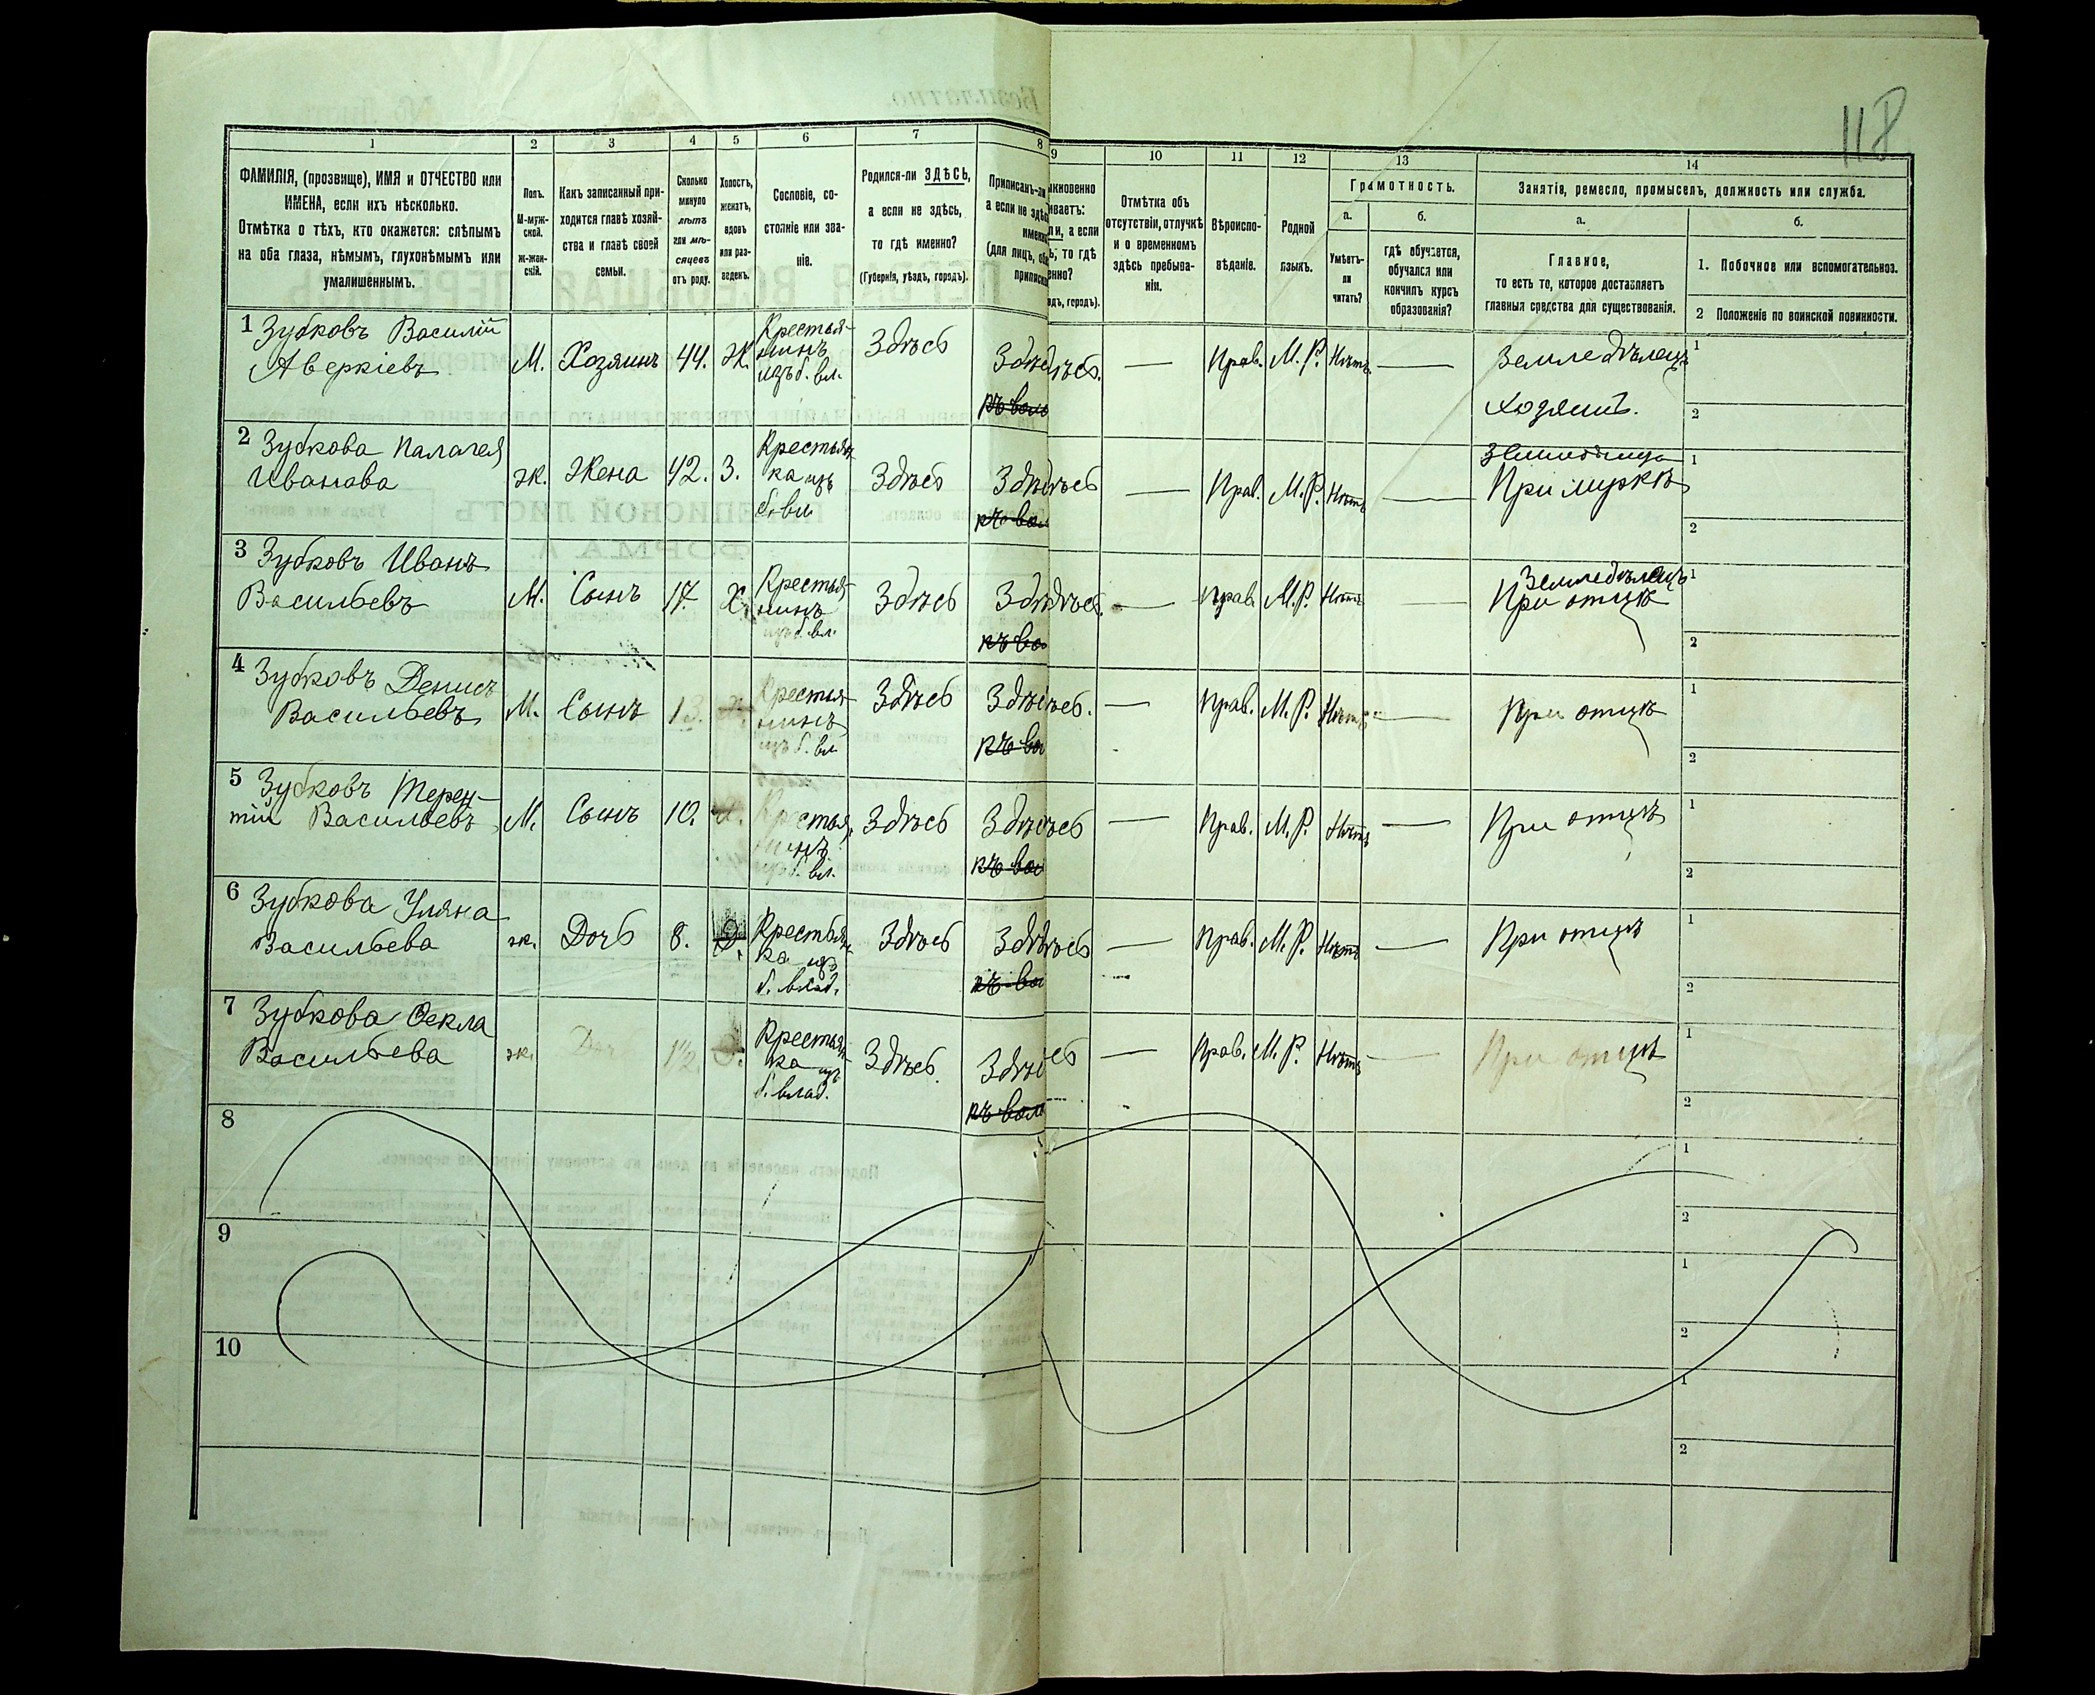 118
1
2
3
4
5
6
7
8
9
10
11
12
13
14
ФАМИЛІЯ, (прозвище), ИМЯ и ОТЧЕСТВО или
ИМЕНА, если ихъ нѣсколько.
Отмѣтка о тѣхъ, кто окажется: слѣпымъ
на оба глаза, нѣмымъ, глухонѣмымъ или
умалишеннымъ.
Полъ.
М-муж-
ской.
ж-жен-
скій.
Какъ записанный при-
ходится главѣ хозяй-
ства и главѣ своей
семьи.
Сколько
минуло
лѣтъ
или мѣ-
сяцевъ
отъ роду.
Холостъ,
женатъ,
вдовъ
или раз-
веденъ.
Сословіе, со-
стояніе или зва-
ніе.
Родился-ли ЗДѢСЬ,
а если не здѣсь,
то гдѣ именно?
(Губернія, уѣздъ, городъ).
Приписанъ-ли
а если не здѣс
именно
(для лицъ, обя
приписк
ыкновенно
иваетъ:
ли, а если
ь, то гдѣ
енно?
здъ, городъ).
Отмѣтка объ
отсутствіи, отлучкѣ
и о временномъ
здѣсь пребыва-
ніи.
Вѣроиспо-
вѣданіе.
Родной
языкъ.
Грамотность.
а.
Умѣетъ-
ли
читать?
б.
гдѣ обучается,
обучался или
кончилъ курсъ
образованія?
Занятіе, ремесло, промыселъ, должность или служба.
а.
Главное,
то есть то, которое доставляетъ
главныя средства для существованія.
б.
1. Побочное или вспомогательное.
2 Положеніе по воинской повинности.
1 Зубковъ Василій
Аверкіевъ
М. Хозяинъ 44. Ж.
Крестья-
нинъ
изъ б. вл.
Здѣсь Здѣс ѣсь. — Прав. М. Р. Нѣтъ —
къ вол
Земледѣлецъ
хозяинъ.
1
2
2 Зубкова Палагея
Иванова
ж. Жена 42. З.
Крестьян
ка изъ
б. вл
Здѣсь Здѣс ѣсь — Прав. М. Р. Нѣтъ —
къ вол
При мужѣ
1
2
3 Зубковъ Иванъ
Васильевъ
М. Сынъ 17. Х.
Крестья-
нинъ
изъ б. вл.
Здѣсь Здѣ дѣсь. — Прав. М. Р. Нѣтъ —
къ во
Земледѣлецъ
При отцѣ
1
2
4 Зубковъ Денисъ
Васильевъ
М. Сынъ 13. Х.
Крестья-
нинъ
изъ б. вл
Здѣсь Здѣс ѣсь. — Прав. М. Р. Нѣтъ —
къ во
При отцѣ
1
2
5 Зубковъ Терен-
тій Васильевъ
М. Сынъ 10. Х.
Крестья-
нинъ
изъ б. вл.
Здѣсь Здѣс ѣсь — Прав. М. Р. Нѣтъ —
къ во
При отцѣ
1
2
6 Зубкова Уляна
Васильева
ж. Дочь 8.
Крестьян
ка изъ
б. влад.
Здѣсь Здѣ ѣсь — Прав. М. Р. Нѣтъ —
къ во
При отцѣ
1
2
7 Зубкова Ѳекла
Васильева
ж. Доч 1½.
Крестьян
ка изъ
б. влад.
Здѣсь Здѣс сь — Прав. М. Р. Нѣтъ —
къ вол
При отцѣ
1
2
8
1
2
9
1
2
10
1
2